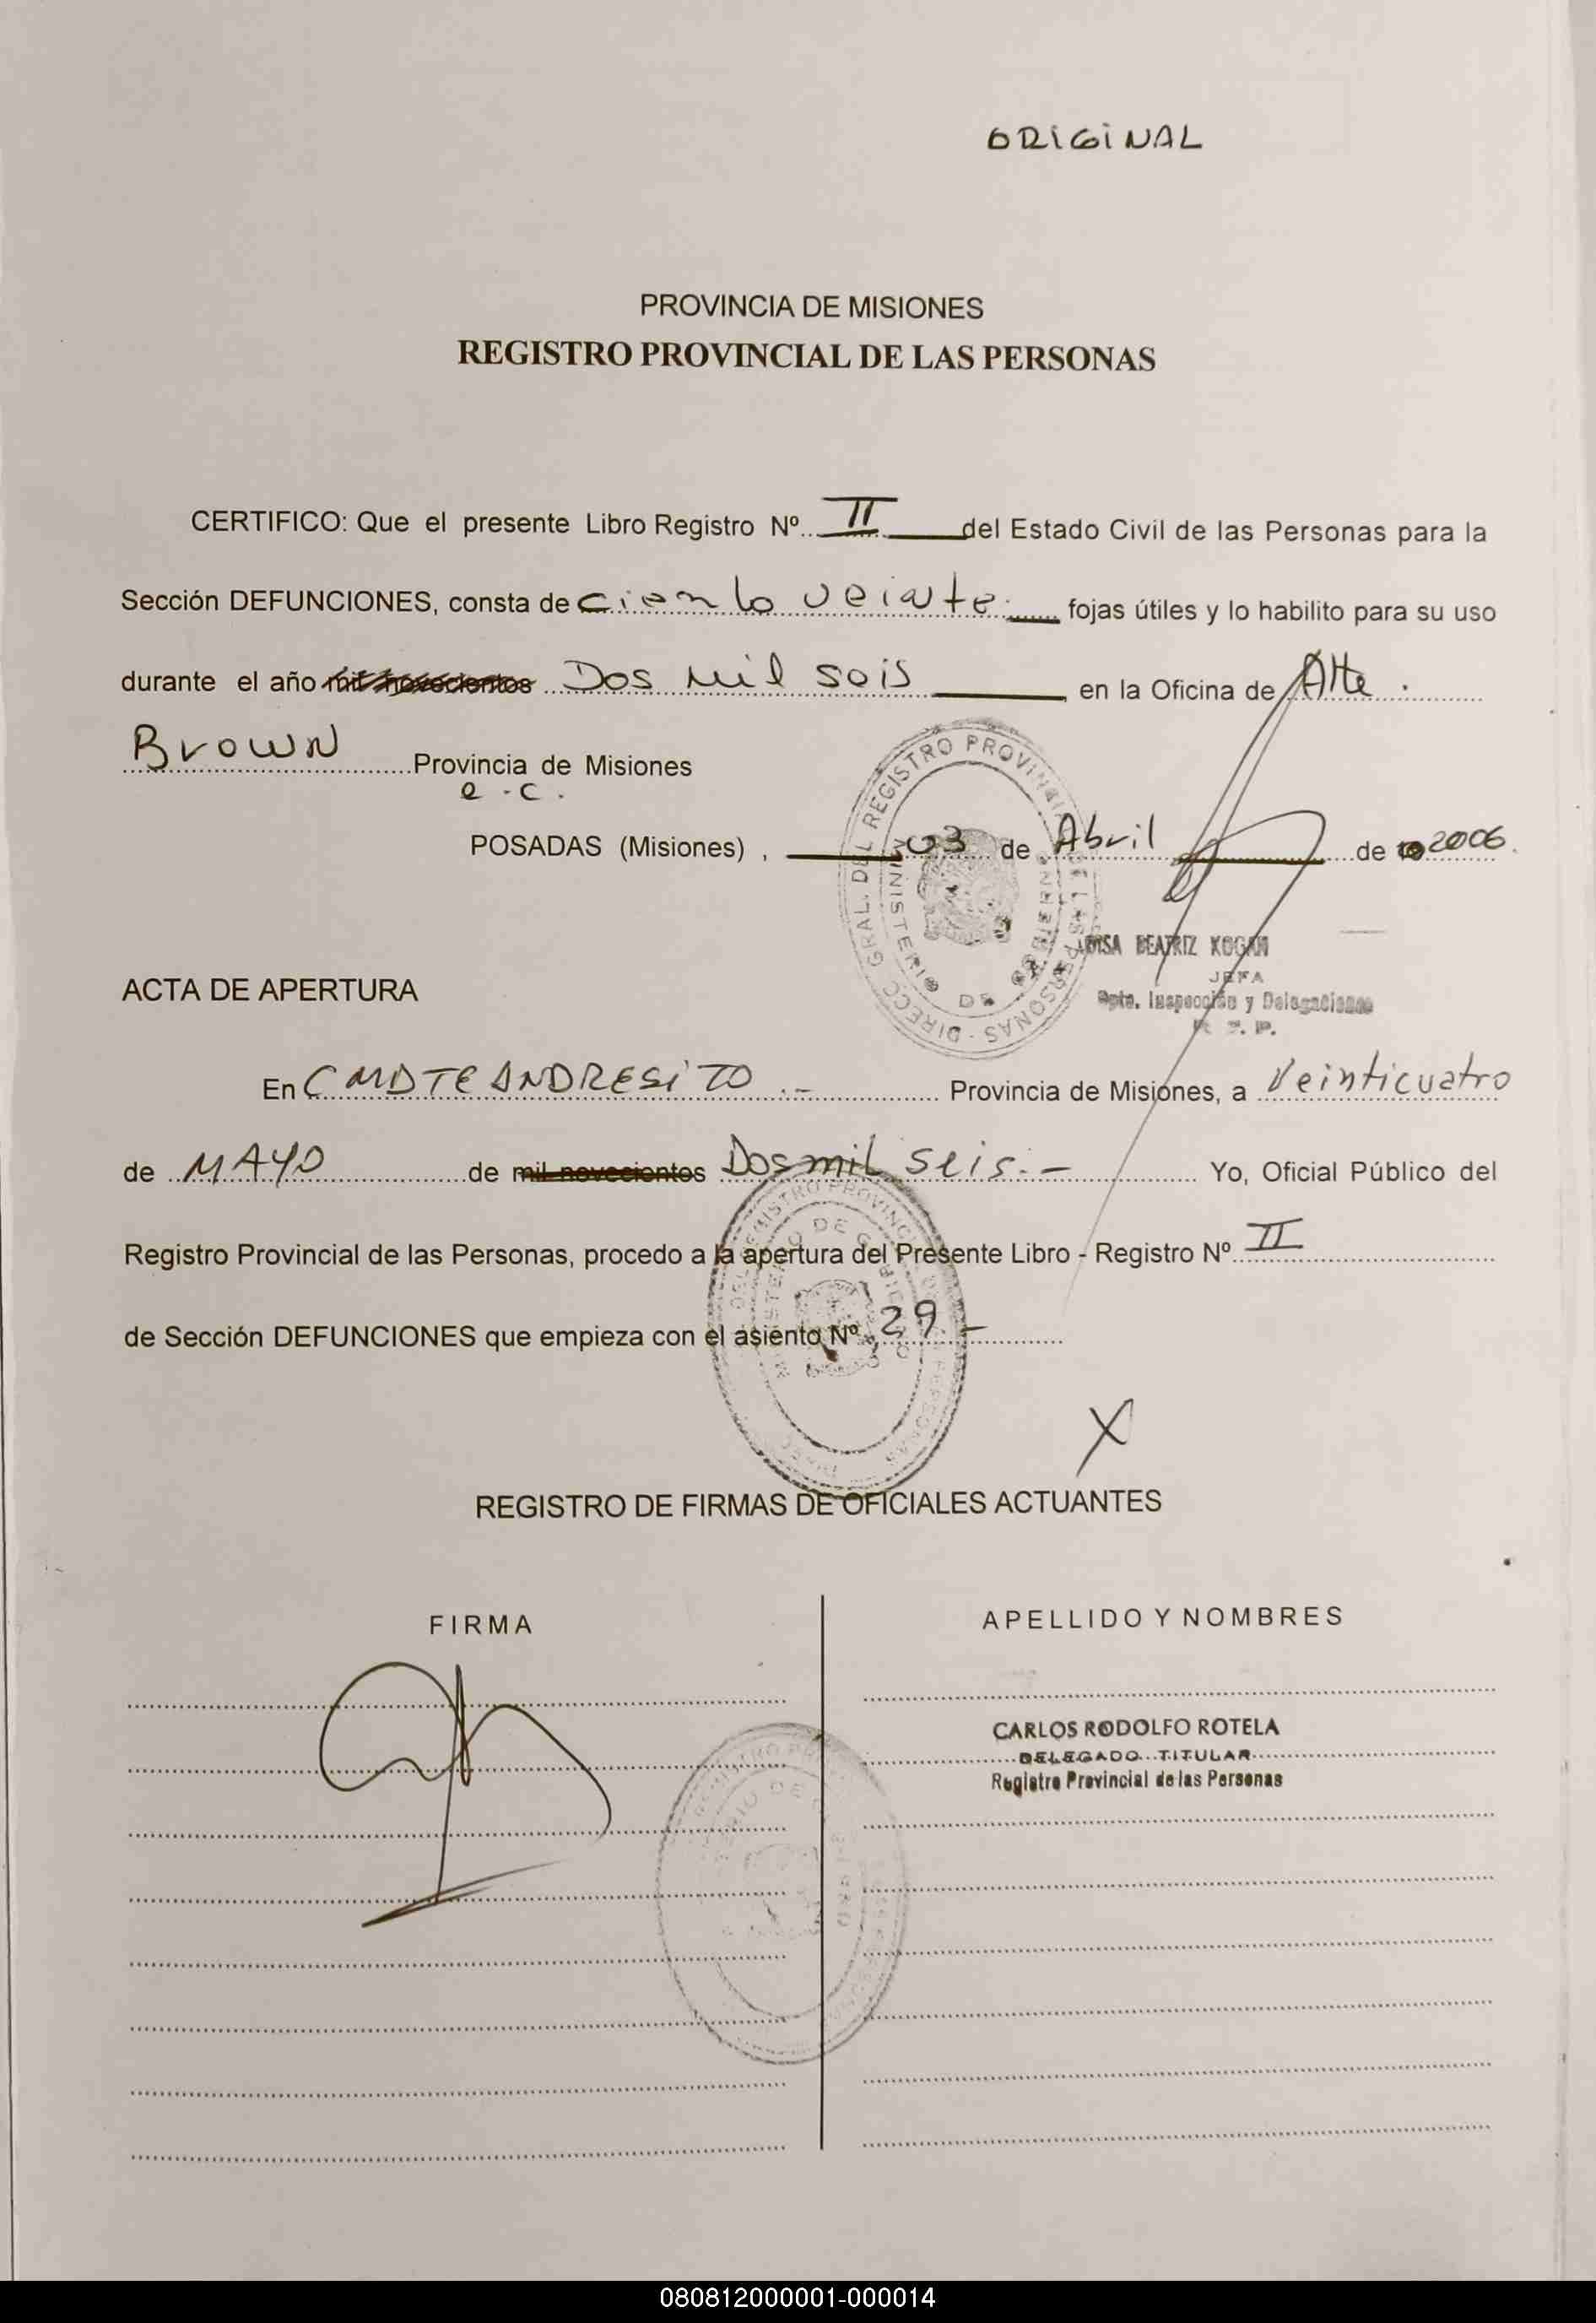 ORIGINAL
PROVINCIA DE MISIONES
REGISTRO PROVINCIAL DE LAS PERSONAS
CERTIFICO: Que el presente Libro Registro Nº II del Estado Civil de las Personas para la
Sección DEFUNCIONES, consta de ciento veinte fojas útiles y lo habilito para su uso
durante el año mil novecientos Dos mil seis en la Oficina de Alte.
Brown Provincia de Misiones
e.c.
POSADAS (Misiones), 03 de Abril de 2006.
BEATRIZ KOGAN
JEFA
Dpto. Inspección y Delegaciones
R. P. P.
DIRECC. GRAL. DEL REGISTRO PROVINCIAL DE LAS PERSONAS
MINISTERIO DE GOBIERNO
ACTA DE APERTURA
En CMDTE ANDRESITO.- Provincia de Misiones, a Veinticuatro
de MAYO de mil novecientos Dos mil seis.- Yo, Oficial Público del
Registro Provincial de las Personas, procedo a la apertura del Presente Libro - Registro Nº II
de Sección DEFUNCIONES que empieza con el asiento Nº 29-
X
REGISTRO DE FIRMAS DE OFICIALES ACTUANTES
FIRMA APELLIDO Y NOMBRES
CARLOS RODOLFO ROTELA
DELEGADO TITULAR
Registro Provincial de las Personas
080812000001-000014